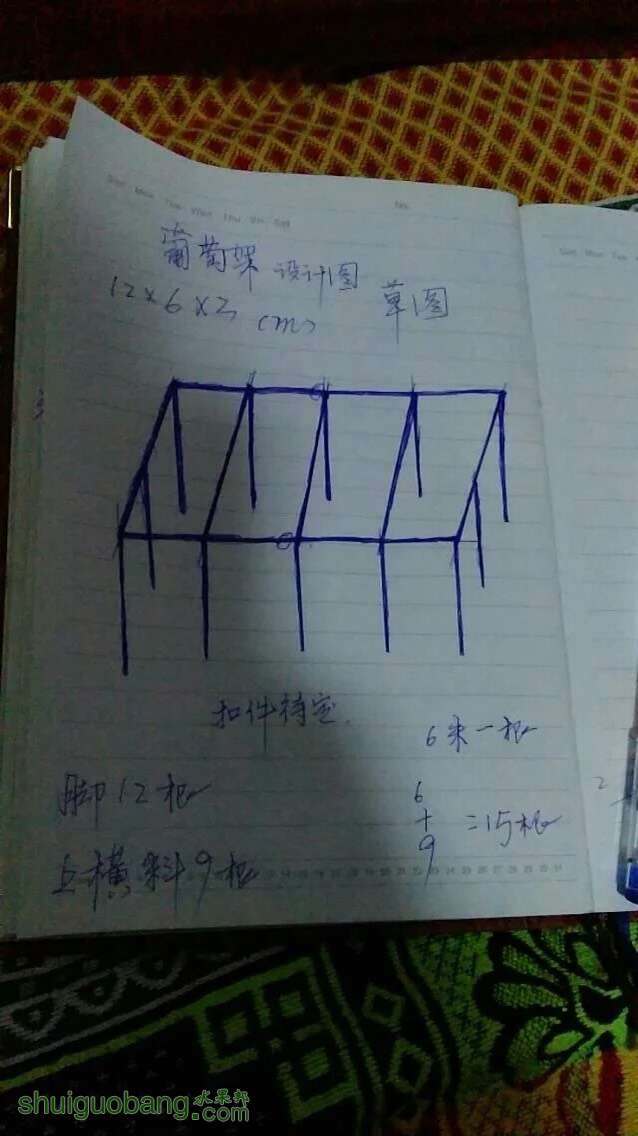 Sun Mon Tue Wed Thu Fri Sat
No.
葡萄架 设计图 草图
12×6×3 (m)
扣件待定.
6米一根
脚12根
6
+
9
=15根
上横料9根
shuiguobang.com
水果邦